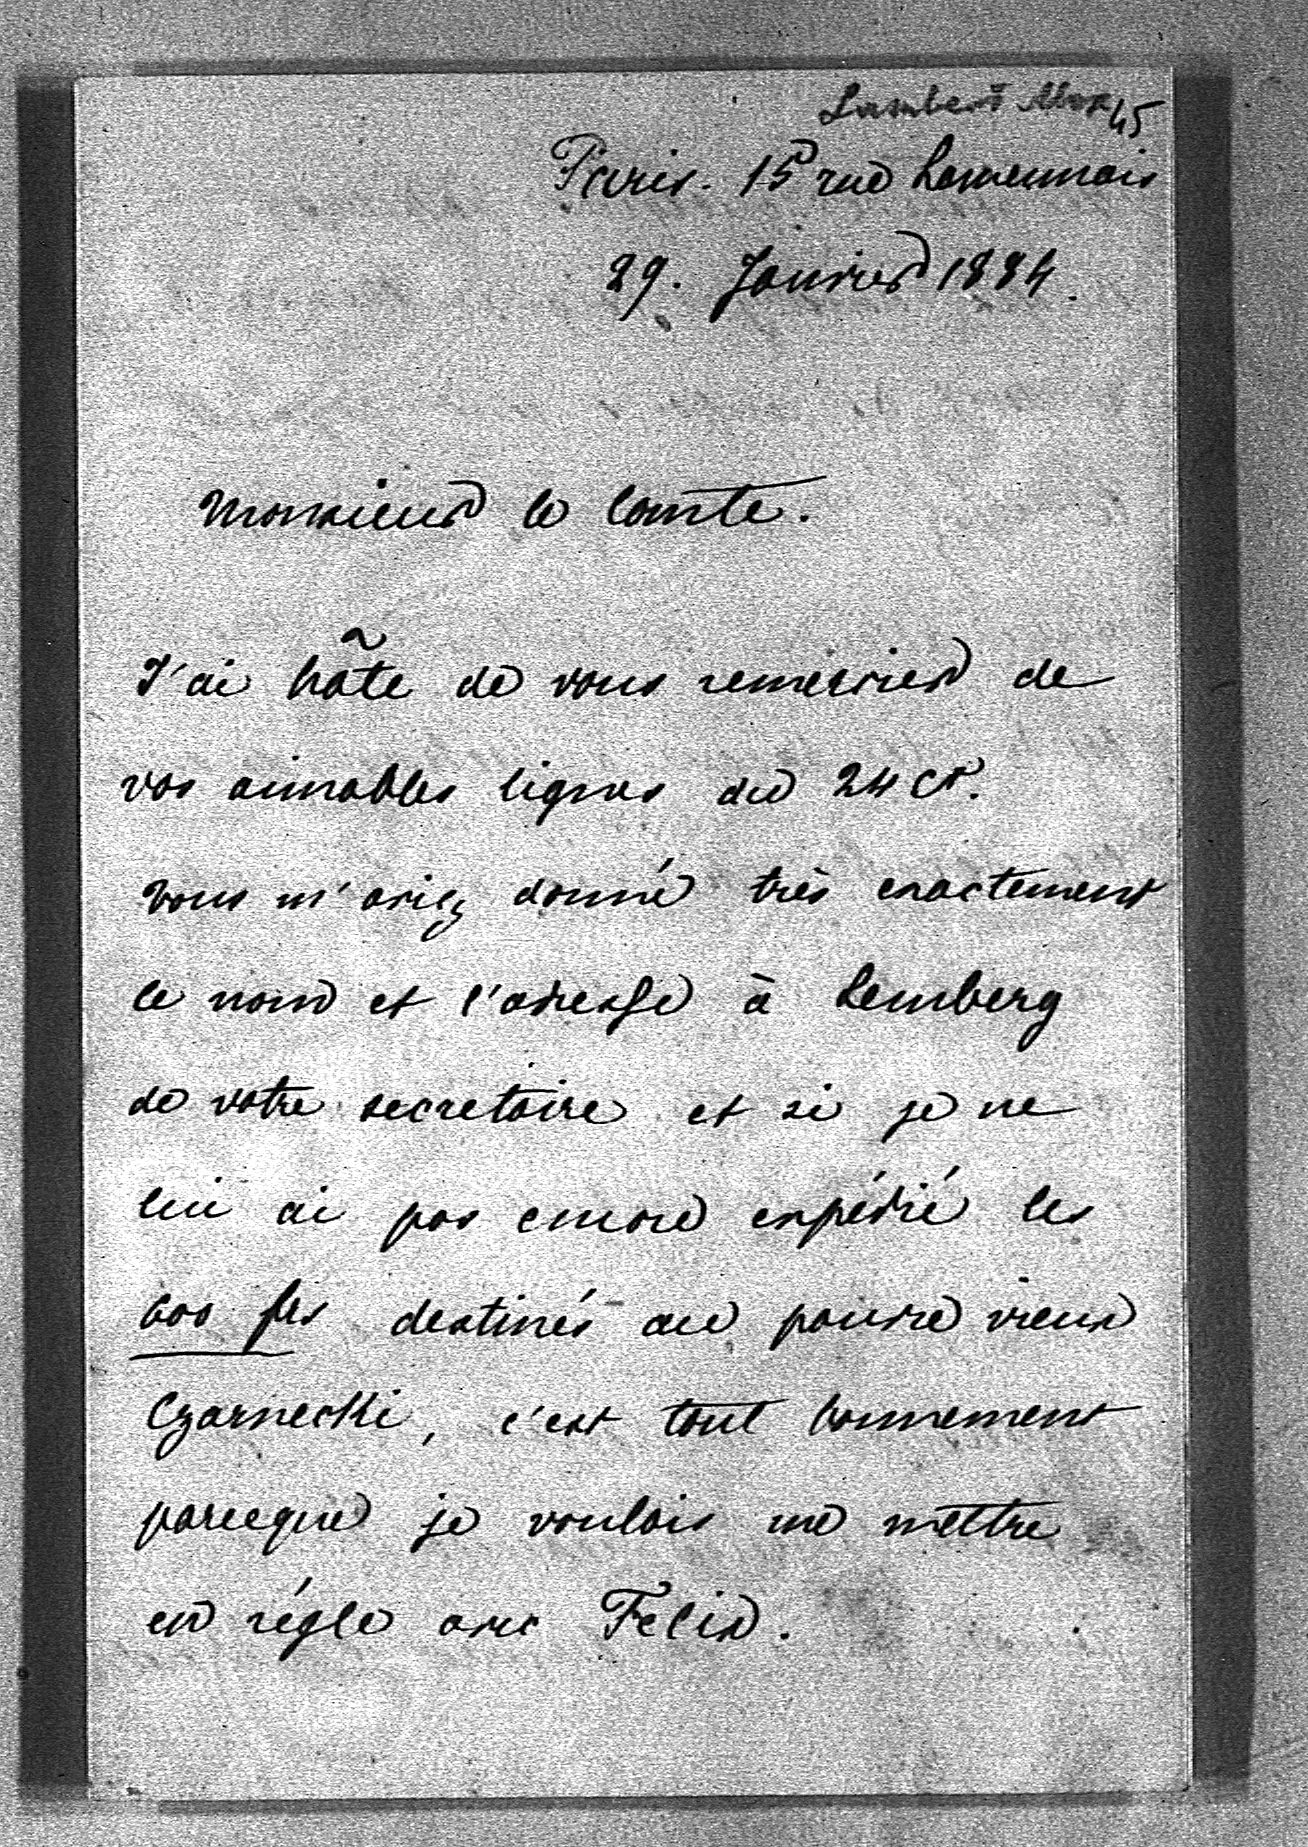 Lambert Alex 45
Paris. 15 rue Lamennais
29. Janvier 1884.
Monsieur le Comte.
J'ai hâte de vous remercier de
vos aimables lignes du 24 ct.
Vous m'aviez donné très exactement
le nom et l'adresse à Lemberg
de votre secretaire et si je ne
lui ai pas encore expédié les
destinés au pauvre vieux
Czarnecki, c'est tout bonnement
parceque je voulais me mettre
en régle avec Felix.